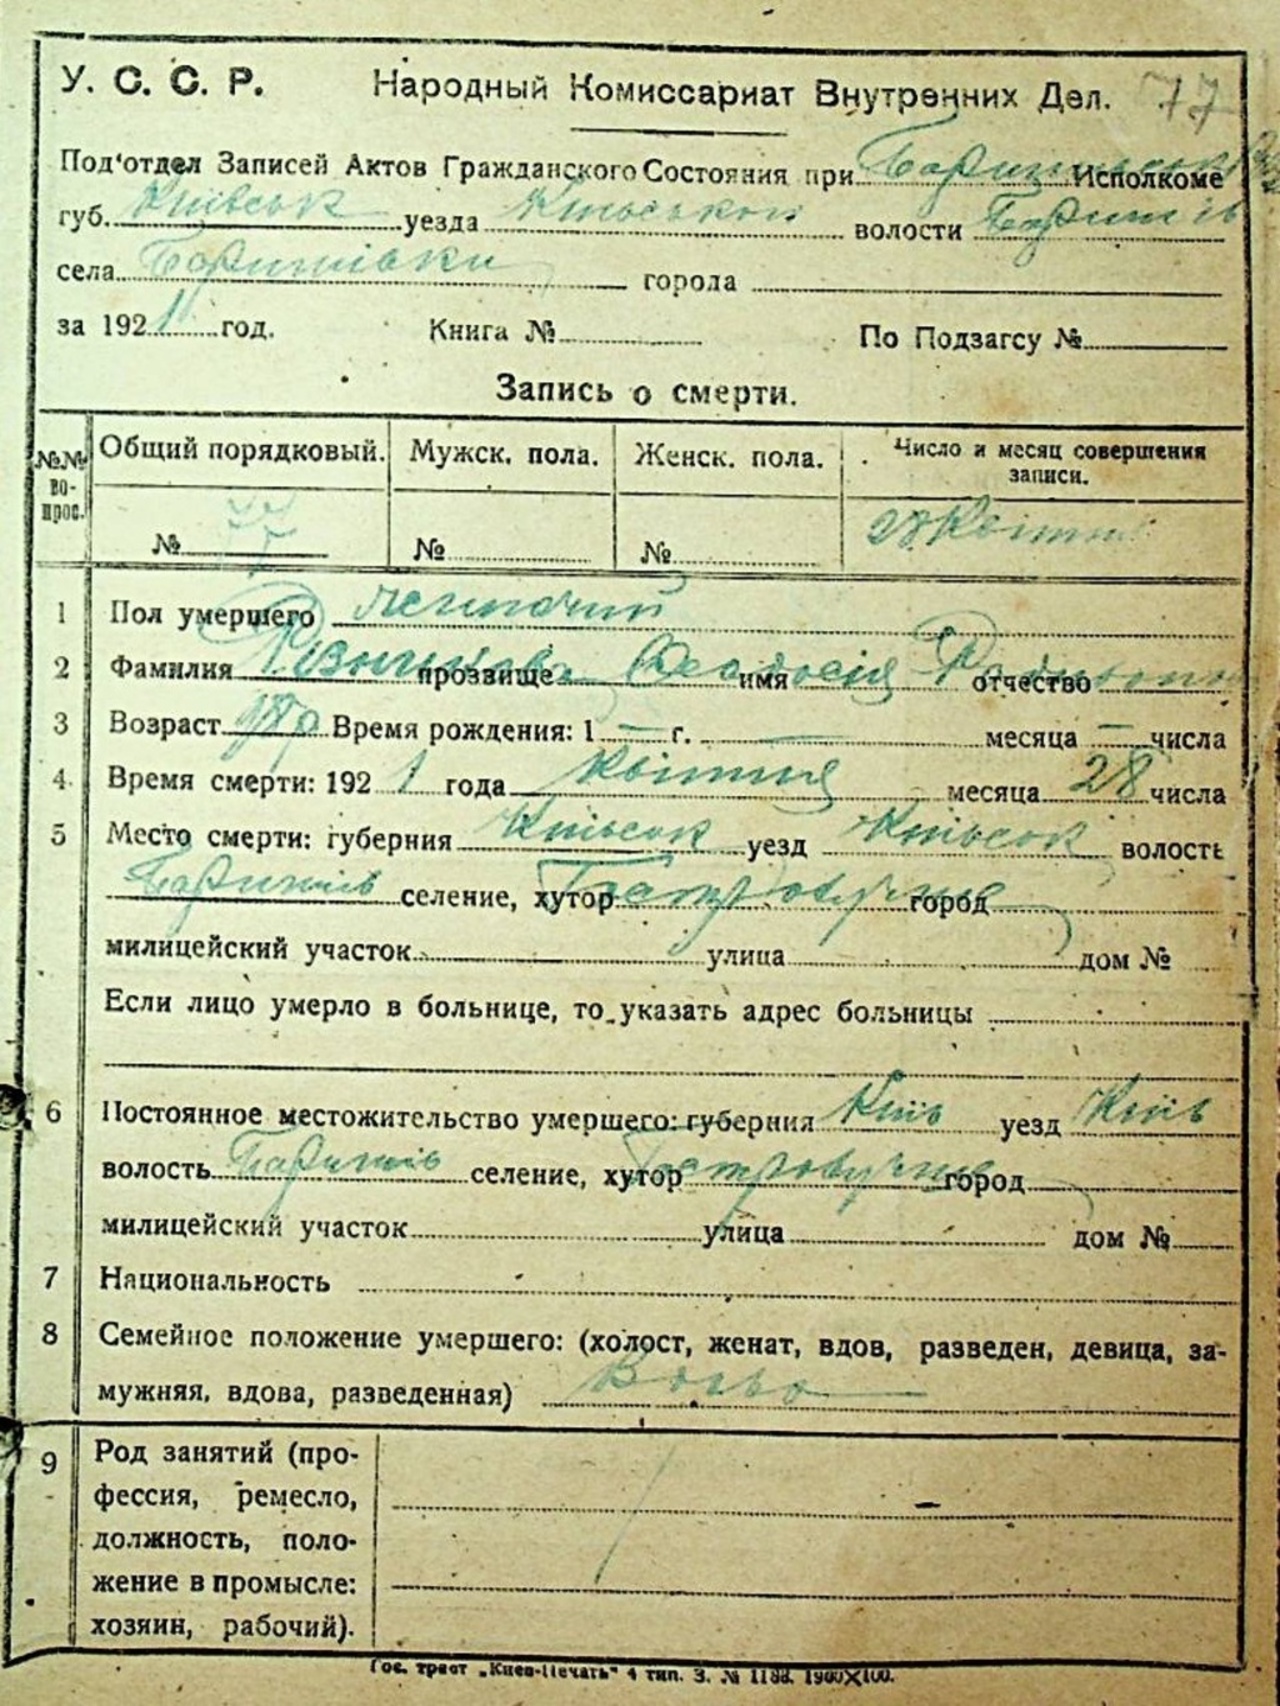 У. С. С. Р. Народный Комиссариат Внутренних Дел. 77
Под'отдел Записей Актов Гражданского Состояния при Исполкоме
губ. Київськ уезда Київської волости Баришів
села Баришівки города
за 1921 год. Книга № По Подзагсу №
Запись о смерти.
№№ вопрос. Общий порядковый. Мужск. пола. Женск. пола. Число и месяц совершения записи.
№ 77 № № 28 Квітня
1 Пол умершего жіночий
2 Фамилия прозвище имя Феодосія отчество
3 Возраст Время рождения: 1 — г. — месяца — числа
4 Время смерти: 1921 года Квітня месяца 28 числа
5 Место смерти: губерния Київськ уезд Київськ волость
Баришів селение, хутор город
милицейский участок улица дом №
Если лицо умерло в больнице, то указать адрес больницы
6 Постоянное местожительство умершего: губерния Київ уезд Київ
волость Баришів селение, хутор город
милицейский участок улица дом №
7 Национальность
8 Семейное положение умершего: (холост, женат, вдов, разведен, девица, за-
мужняя, вдова, разведенная)
9 Род занятий (про-
фессия, ремесло,
должность, поло-
жение в промысле:
хозяин, рабочий).
Гос. трест „Киев-Печать" 4 тип. З. № 1188. 1900X100.